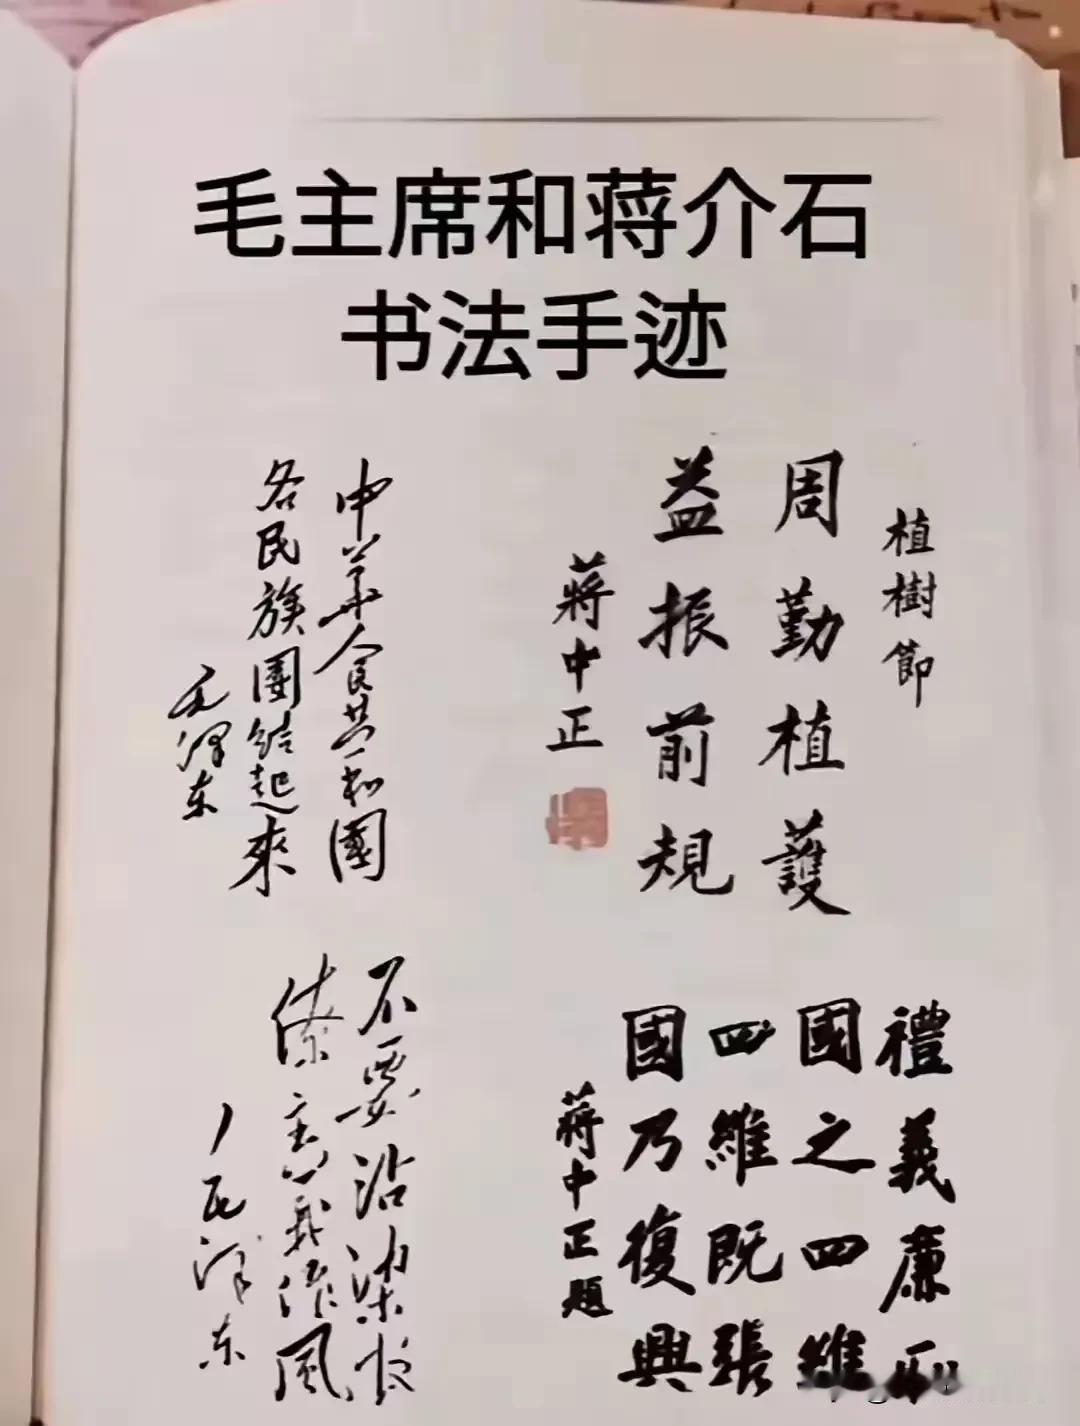 毛主席和蒋介石
书法手迹
植樹節
周勤植護
益振前規
蔣中正
中華人民共和國
各民族團結起來
毛澤东
禮義廉
國之四維
四維既張
國乃復興
蔣中正題
不要沾染官
僚主義作風
毛澤东